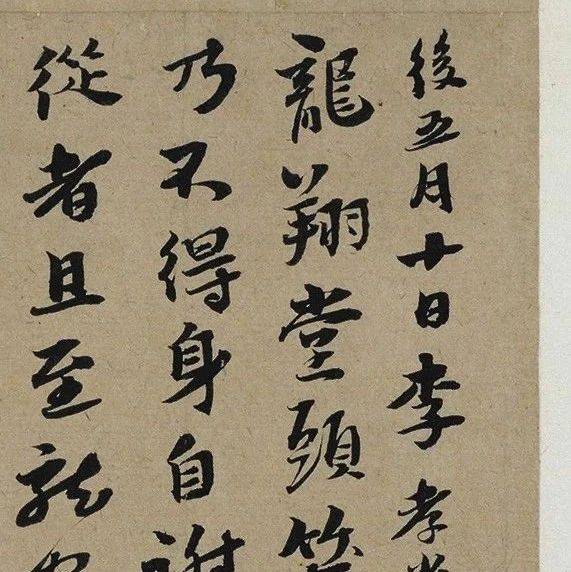 後五月十日李孝
龍翔堂頭笑
乃不得身自謝
從者且至就